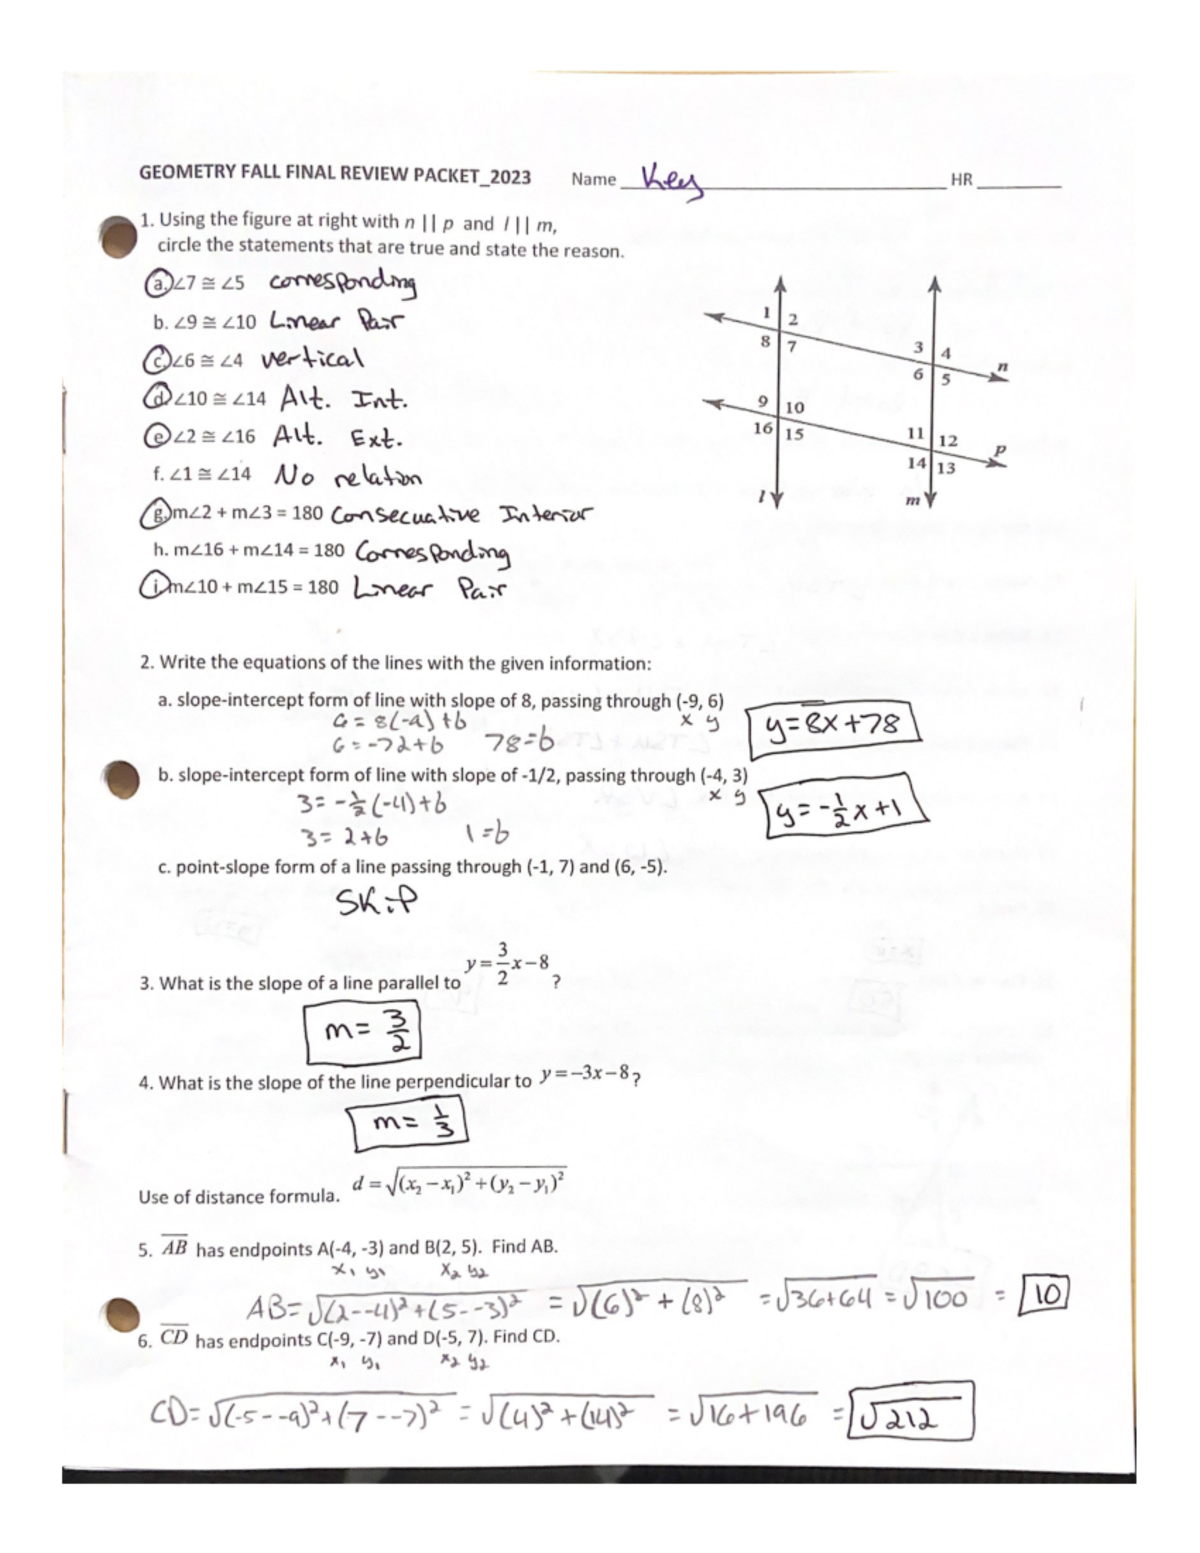 GEOMETRY FALL FINAL REVIEW PACKET_2023 Name Key HR
1. Using the figure at right with n || p and l || m,
circle the statements that are true and state the reason.
a. ∠7 ≅ ∠5 corresponding
b. ∠9 ≅ ∠10 Linear Pair
c. ∠6 ≅ ∠4 vertical
d. ∠10 ≅ ∠14 Alt. Int.
e. ∠2 ≅ ∠16 Alt. Ext.
f. ∠1 ≅ ∠14 No relation
g. m∠2 + m∠3 = 180 Consecuative Interior
h. m∠16 + m∠14 = 180 Corresponding
i. m∠10 + m∠15 = 180 Linear Pair
1 2
8 7
3 4
6 5
n
9 10
16 15
11 12
14 13
p
l
m
2. Write the equations of the lines with the given information:
a. slope-intercept form of line with slope of 8, passing through (-9, 6)
x y
6 = 8(-9)+b
6 = -72+b 78=b
y=8x+78
b. slope-intercept form of line with slope of -1/2, passing through (-4, 3)
x y
3= -1/2(-4)+b
3= 2+b 1=b
y=-1/2x+1
c. point-slope form of a line passing through (-1, 7) and (6, -5).
SKiP
3. What is the slope of a line parallel to y=3/2x-8 ?
m= 3/2
4. What is the slope of the line perpendicular to y=-3x-8?
m= 1/3
Use of distance formula. d=√(x₂-x₁)²+(y₂-y₁)²
5. AB has endpoints A(-4, -3) and B(2, 5). Find AB.
x₁ y₁ x₂ y₂
AB=√(2--4)²+(5--3)² = √(6)²+(8)² = √36+64 = √100 = 10
6. CD has endpoints C(-9, -7) and D(-5, 7). Find CD.
x₁ y₁ x₂ y₂
CD=√(-5--9)²+(7--7)² = √(4)²+(14)² = √16+196 = √212